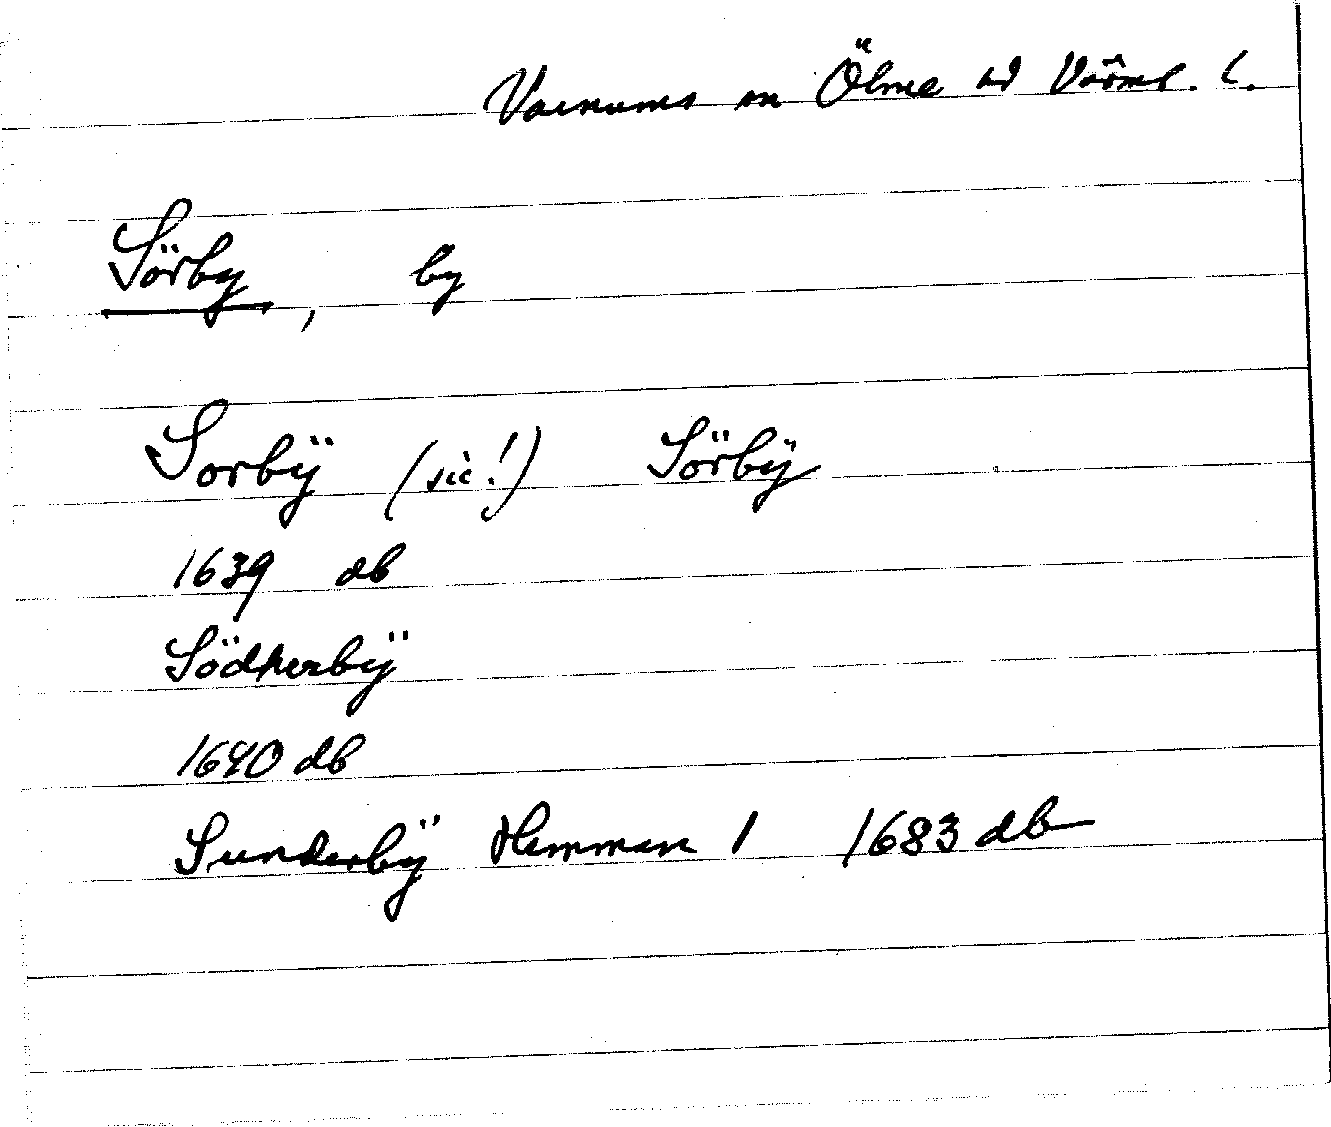 Varnums sn Ölme hd Värml. l.
Sörby, by
Sorbÿ (sic!) Sörbÿ
1639 db
Södherbÿ
1640 db
Sunderbÿ Hemman 1 1683 db